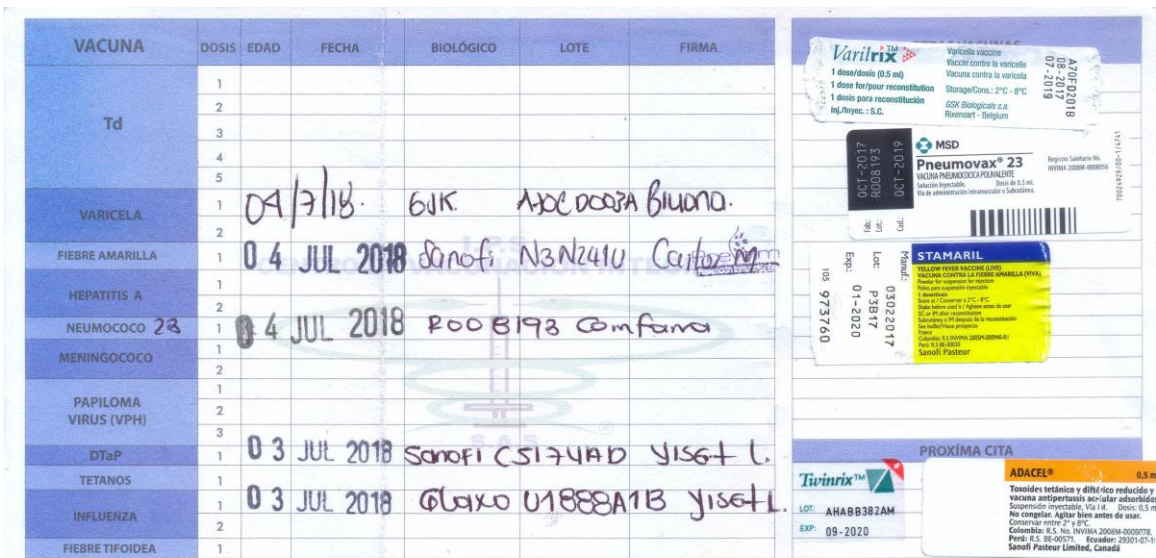 VACUNA DOSIS EDAD FECHA BIOLÓGICO LOTE FIRMA
Td 1
2
3
4
5
VARICELA 1 04/7/18. GSK.
2
FIEBRE AMARILLA 1 04 JUL 2018 Sanofi N3N241U Carlos M
HEPATITIS A 1
2
NEUMOCOCO 23 1 04 JUL 2018 R008193 Comfama
MENINGOCOCO 1
2
PAPILOMA VIRUS (VPH) 1
2
3
DTaP 1 03 JUL 2018 Sanofi C5174AD Yiset L.
TETANOS 1
INFLUENZA 1 03 JUL 2018 Glaxo U1888A1B Yiset L.
2
FIEBRE TIFOIDEA 1
S.A.S
Varilrix™
1 dose/dosis (0.5 ml)
1 dose for/pour reconstitution
1 dosis para reconstitución
Inj./Inyec. : S.C.
Varicella vaccine
Vaccin contre la varicelle
Vacuna contra la varicela
Storage/Cons.: 2°C - 8°C
GSK Biologicals s.a.
Rixensart - Belgium
A70FD201B
08-2017
07-2019
MSD
Pneumovax® 23
VACUNA PNEUMOCOCICA POLIVALENTE
Solución Inyectable. Dosis de 0.5 ml.
Vía de administración Intramuscular o Subcutánea.
Registro Sanitario No.
INVIMA 2008M-0008056
Fab.: OCT-2017
Lot.: R008193
Cad.: OCT-2019
STAMARIL
YELLOW FEVER VACCINE (LIVE)
VACUNA CONTRA LA FIEBRE AMARILLA (VIVA)
Powder for suspension for injection
Polvo para suspensión inyectable
1 dose/dosis
Store at / Conservar a 2°C - 8°C
Shake before used in / Agítese antes de usar
SC or IM after reconstitution
Subcutánea o IM después de la reconstitución
See leaflet/Véase prospecto
France
Sanofi Pasteur
Manuf.: 03022017
Lot: P3B17
Exp.: 01-2020
105 973760
PROXÍMA CITA
Twinrix™
LOT: AHABB382AM
EXP: 09-2020
ADACEL® 0,5 m
Toxoides tetánico y diftérico reducido y
vacuna antipertussis acelular adsorbidos
Suspensión inyectable, Vía I.M. Dosis: 0,5 m
No congelar. Agitar bien antes de usar.
Conservar entre 2° y 8°C.
Colombia: R.S. No. INVIMA 2008M-0008078.
Perú: R.S. BE-00571. Ecuador: 29301-07-1
Sanofi Pasteur Limited, Canadá